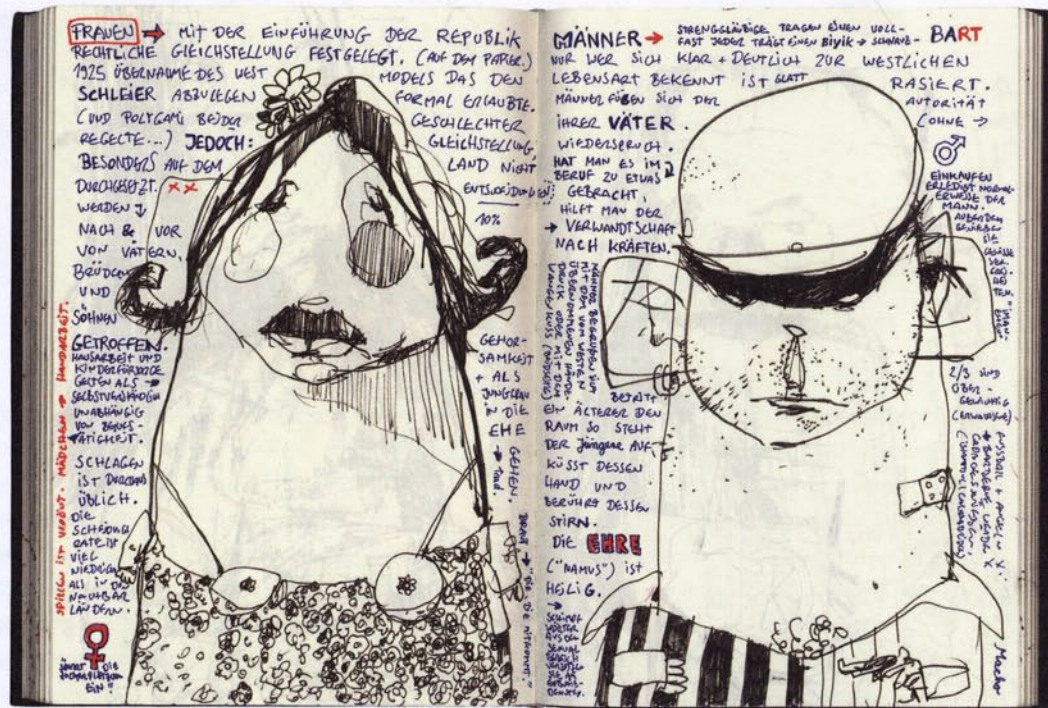 FRAUEN → MIT DER EINFÜHRUNG DER REPUBLIK
RECHTLICHE GLEICHSTELLUNG FESTGELEGT. (AUF DEM PAPIER.)
1925 ÜBERNAHME DES WEST MODELS DAS DEN
SCHLEIER ABZULEGEN FORMAL ERLAUBTE.
(UND POLYGAMIE BEIDER GESCHLECHTER
REGELTE...) JEDOCH: GLEICHSTELLUNG
BESONDERS AUF DEM LAND NICHT
DURCHGESETZT. XX ENTSCHEIDUNGEN
WERDEN 10%
NACH & VOR
VON VÄTERN,
BRÜDERN
UND
SÖHNEN
GETROFFEN.
HAUSARBEIT UND
KINDERFÜRSORGE
GELTEN ALS →
SELBSTVERSTÄNDLICH
UNABHÄNGIG
VON BERUFS-
TÄTIGKEIT.
SCHLAGEN
IST DURCHAUS
ÜBLICH.
DIE
SCHEIDUNGS
RATE IST
VIEL
NIEDRIGER
ALS IN DEN
NACHBAR
LÄNDERN.
♀
SPIELEN IST VERPÖNT. MÄDCHEN → HANDARBEIT.
GEHOR-
SAMKEIT
+ ALS
JUNGFRAU
IN DIE
EHE
GEHEN.
→ Trad.
BRAUT → "DIE, DIE MITKOMMT."
MÄNNER → STRENGGLÄUBIGE TRAGEN EINEN VOLL- BART
FAST JEDER TRÄGT EINEN BIYIK → SCHNAUZ-
NUR WER SICH KLAR + DEUTLICH ZUR WESTLICHEN
LEBENSART BEKENNT IST GLATT RASIERT.
MÄNNER FÜGEN SICH DER AUTORITÄT
IHRER VÄTER. (OHNE →
WIEDERSPRUCH.
HAT MAN ES IM
BERUF ZU ETWAS
GEBRACHT,
HILFT MAN DER
→ VERWANDTSCHAFT
NACH KRÄFTEN.
MÄNNER BEGRÜßEN SICH
MIT DEM VOM WESTEN
ÜBERNOMMENEN HÄNDE-
DRUCK ODER MIT DEM
WANGENKUSS
BETRITT
EIN ÄLTERER DEN
RAUM SO STEHT
DER Jüngere AUF,
KÜSST DESSEN
HAND UND
BERÜHRT DESSEN
STIRN.
DIE EHRE
("NAMUS") IST
HEILIG.
→
SCHIMPF
WÖRTER
AUS DEM
SEXUAL
BEREICH
♂
EINKAUFEN
ERLEDIGT NORMAL-
ERWEISE DER
MANN.
AUßERDEM
GENIEßEN
SIE
2/3 SIND
ÜBER-
GEWICHTIG
(ERWACHSENE)
FUSSBALL + ANGELN
Macho